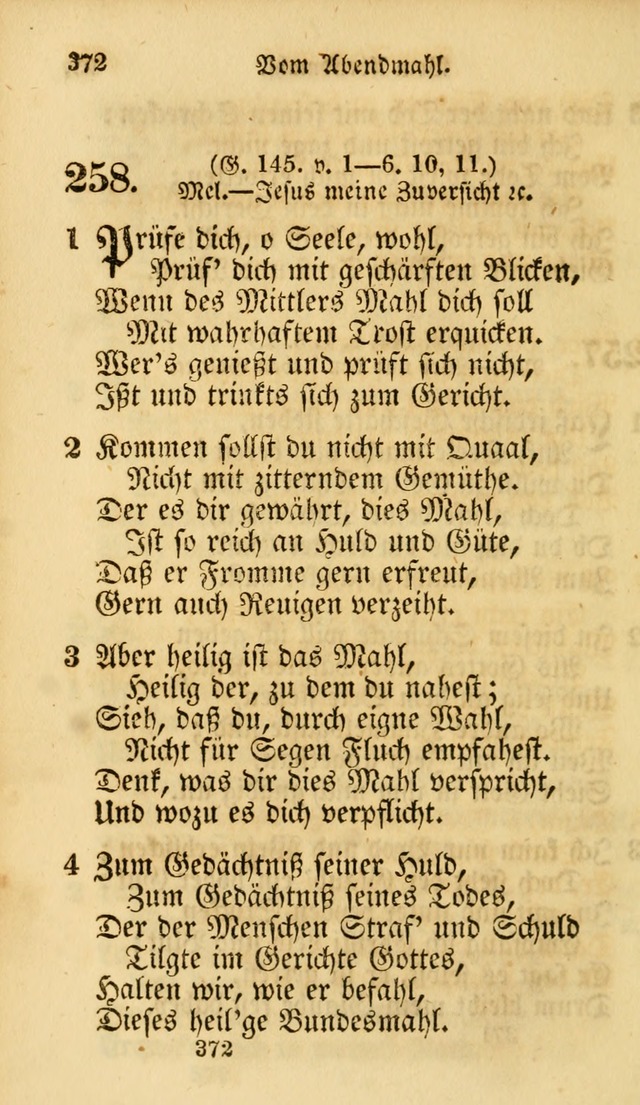 372 Vom Abendmahl.
258. (G. 145. v. 1—6. 10, 11.)
Mel.—Jesus meine Zuversicht ꝛc.
1 Prüfe dich, o Seele, wohl,
Prüf' dich mit geschärften Blicken,
Wenn des Mittlers Mahl dich soll
Mit wahrhaftem Trost erquicken.
Wer's genießt und prüft sich nicht,
Ißt und trinkts sich zum Gericht.
2 Kommen sollst du nicht mit Quaal,
Nicht mit zitterndem Gemüthe.
Der es dir gewährt, dies Mahl,
Ist so reich an Huld und Güte,
Daß er Fromme gern erfreut,
Gern auch Reuigen verzeiht.
3 Aber heilig ist das Mahl,
Heilig der, zu dem du nahest;
Sieh, daß du, durch eigne Wahl,
Nicht für Segen Fluch empfahest.
Denk, was dir dies Mahl verspricht,
Und wozu es dich verpflicht.
4 Zum Gedächtniß seiner Huld,
Zum Gedächtniß seines Todes,
Der der Menschen Straf' und Schuld
Tilgte im Gerichte Gottes,
Halten wir, wie er befahl,
Dieses heil'ge Bundesmahl.
372